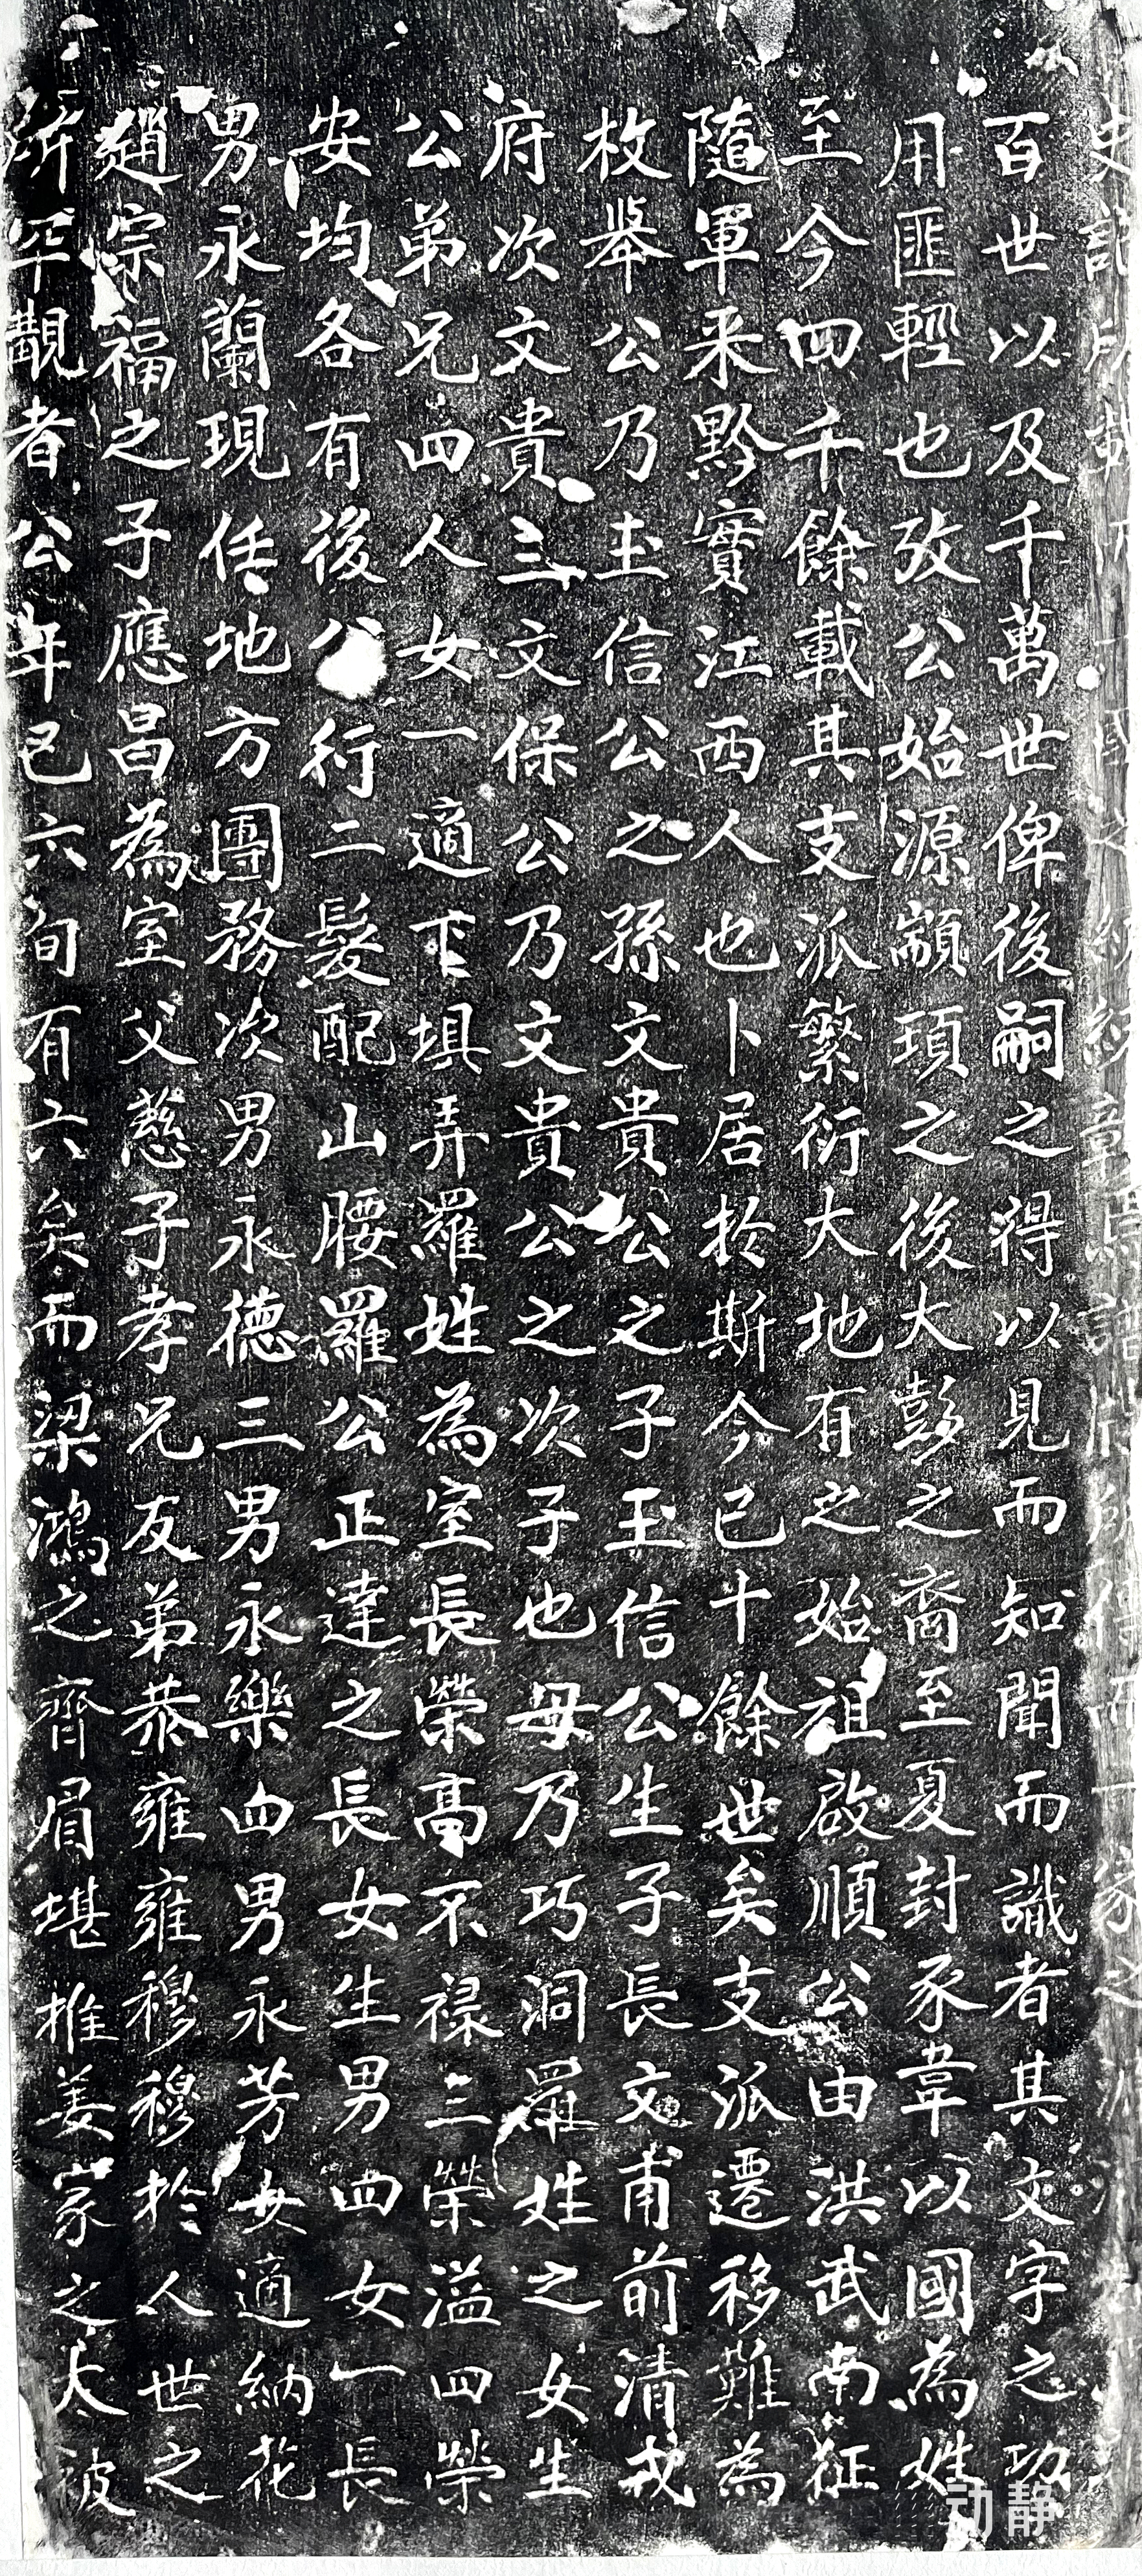 史記所載 國之 紀 章 譜 傳而 家之
百世以及千萬世俾後嗣之得以見而知聞而識者其文字之功
用匪輕也攷公始源顓頊之後大彭之裔至夏封豕韋以國為姓
至今四千餘載其支派繁衍大地有之始祖啟順公由洪武南征
隨軍来黔實江西人也卜居於斯今已十餘世矣支派遷移難為
枚舉公乃玉信公之孫文貴公之子玉信公生子長文甫前清戎
府次文貴三文保公乃文貴公之次子也母乃巧洞羅姓之女生
公弟兄四人女一適下埧弄羅姓為室長榮高不祿三榮溢四榮
安均各有後公行二髮配山腰羅公正達之長女生男四女一長
男永蘭現任地方團務次男永德三男永樂四男永芳女適納花
趙宗福之子應昌為室父慈子孝兄友弟恭雍雍穆穆於人世之
所罕覯者公年已六旬有六矣而梁鴻之齊眉堪推姜家之大被
动静